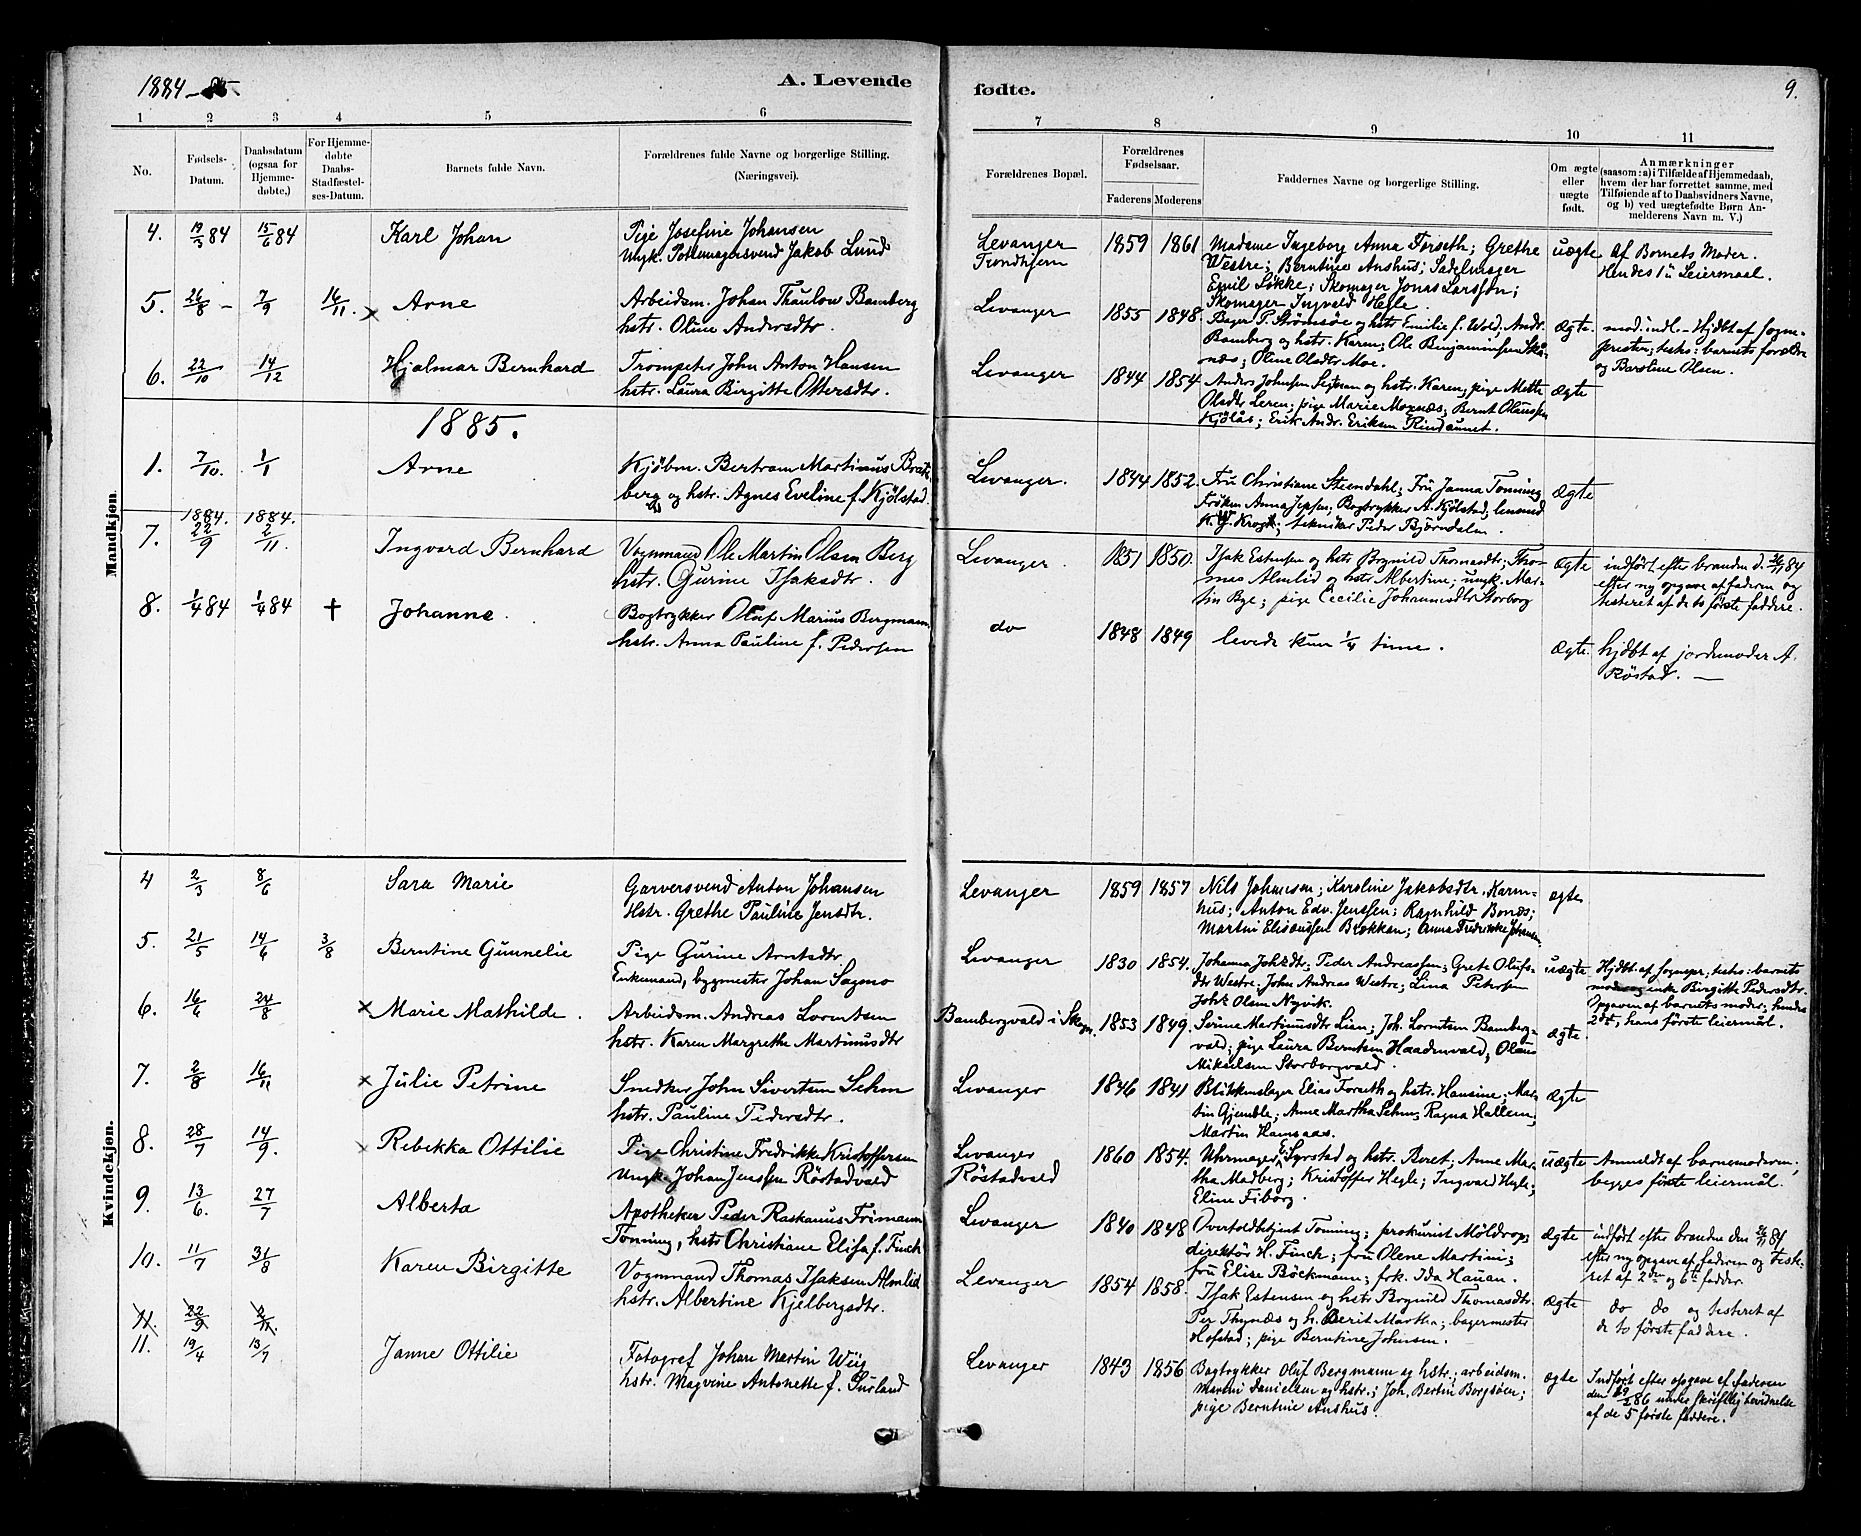 1884-85.
A. Levende
fødte.
9.
1 2 3 4 5 6 7 8 9 10 11
No.
Fødsels-
Datum.
Daabsdatum
(ogsaa for
Hjemme-
døbte,)
For Hjemme-
døbte
Daabs-
Stadfæstel-
ses-Datum.
Barnets fulde Navn.
Forældrenes fulde Navne og borgerlige Stilling.
(Næringsvei).
Forældrenes Bopæl.
Forældrenes
Fødselsaar.
Faderens Moderens
Faddernes Navne og borgerlige Stilling.
Om ægte
eller
uægte
født.
Anmærkninger
(saasom: a) i Tilfælde af Hjemmedaab,
hvem der har forrettet samme, med
Tilføiende af to Daabsvidners Navne,
og b) ved uægtefødte Børn An-
melderens Navn m. V.)
Mandkjøn.
4. 19/3 84 15/6 84 Karl Johan
Pige Josefine Johansen
Ungk. Pottemagersvend Jakob Lund
Levanger
Trondhjem
1859 1861
Madame Ingeborg Anna Forseth; Grethe
Westre; Berntine Aushus; Sadelmager
Emil Løkke; Skomager Jonas Larssen;
Skomager Ingvald Hegle.
uægte
Af Barnets Moder.
Hendes 1ste Leiermaal.
5. 26/8 - 7/9 16/11. x Arne
Arbeidsm. Johan Thaulow Bamberg
hstr. Oline Andersdtr.
Levanger
1855 1848.
Bager P. Strømsøe og hstr Emilie f. Wold. Andr.
Bamberg og hstr. Karen; Ole Benjaminsen Skå-
næs; Oline Olsdtr Moe.
ægte.
mod. indl. - Hjdbt af sogne-
presten; testes: barnets forældre
og Baroline Olsen.
6. 22/10 14/12 Hjalmar Bernhard
Trompeter John Anton Hansen
hstr. Laura Birgitte Ottersdtr.
Levanger
1844 1854.
Anders Johnsen Segtnan og hstr. Karen; pige Mette
Olsdtr Leren; pige Marie Moxnæs; Bernt Olaussen
Kjølås; Erik Andr. Eriksen Rindaunet.
ægte
1885.
1. 7/10. 1/1 Arne
Kjøbm. Bertram Martinus Brat-
berg og hstr. Agnes Eveline f. Kjølstad.
Levanger.
1844 1852.
Fru Christiane Steendahl; Fru Janna Tonning
Frøken Anna Jepsen; Bogtrykker A. Kjølstad; lensmd
K. Krogh; tekniker Peder Bjørndalen.
ægte
1884. 1884.
7. 22/9 2/11. Ingvard Bernhard
Vognmand Ole Martin Olsen Berg
hstr. Gurine Isaksdtr.
Levanger.
1851 1850.
Isak Estensen og hstr Brynild Thomasdtr; Tho-
mas Almlid og hstr Albertine; ungk. Mar-
tin Bye; pige Cecilie Johannesdtr Storborg
ægte
indført efter branden d. 26/11 84
efter ny opgave af faderen og
testeret af de to første faddere.
8. 1/4 84 1/4 84 † Johanne.
Bogtrykker Oluf Marius Bergmann,
hstr. Anna Pauline f. Pedersen
do
1848 1849
levede kun 1/4 time.
ægte.
hjdbt af jordemoder A.
Røstad. —
Kvindekjøn.
4 2/3 8/6 Sara Marie
Garversvend Anton Johansen
Hstr. Grethe Pauline Jensdtr.
Levanger
1859 1857
Nils Johansen; Karoline Jakobsdtr. Karm-
hus; Anton Edv. Jenssen; Ragnhild Bonæs;
Martin Eliseussen Brokkan; Anna Fredrikke Johansen
ægte
5. 21/5 14/6 3/8 Berntine Gunnelie
Pige Gurine Arntsdtr.
Enkemand, bygmester Johan Sagmo
Levanger
1830 1854.
Johanna Johsdtr; Peder Andreassen; Grete Olufs-
dtr Westre. John Andreas Westre; Lina Petersen
Johs Olsen Nyvik.
uægte
Hjdbt. af sognepr., testes: barnets
enke Birgitte Pedersdtr.
Opgaven af barnets moder; hendes
2det, hans første leiermål.
6. 16/6 24/8 x Marie Mathilde.
Arbeidsm. Andreas Lorentsen
hstr. Karen Margrethe Martinusdtr
Bambergvald i Skogn.
1853 1849.
Serine Martinusdtr Lian; Joh. Lorntsen Bamberg-
vald; pige Laura Berntsen Haadenvald; Olaus
Mikkelsen Storborgvald.
ægte.
7. 2/8 16/11 x Julie Petrine
Snedker John Sivertsen Sehm
hstr. Pauline Pedersdtr.
Levanger
1846 1841
Blikkenslager Elias Forseth og hstr. Hansine; Mar-
tin Gjemble; Anne Martha Sehm; Ragna Hallem;
Martin Hamsaas.
ægte
8. 28/7 14/9. x Rebekka Ottilie
Pige Christine Fredrikke Kristoffersen
Ungk. Johan Jenssen Røstadvald
Levanger
Røstadvald
1860 1854.
Uhrmager E. Syrstad og hstr. Beret; Anne Mar-
tha Madberg; Kristoffer Hegle; Ingvald Hegle;
Eline Fiborg.
uægte
Anmeldt af barnemoderen;
begges første leiermål.
9. 13/6. 27/7 Alberta
Apotheker Peder Raskanus Frimann
Tonning, hstr Christiane Elisa f. Finch
Levanger
1840 1848
Overtoldbetjent Tonning; prokurist Moldrop;
direktør H. Finch; fru Olene Martini;
fru Elise Böckmann; frk. Ida Hauan.
ægte
indført efter branden den 26/11 84
efter ny opgave af faderen og test-
ret af 2den og 6te fadder.
10. 11/7 31/8 Karen Birgitte
Vognmand Thomas Isaksen Almlid
hstr. Albertine Kjelbergsdtr.
Levanger
1854 1858.
Isak Estensen og hstr Brynild Thomasdtr.
Per Thynæs og h. Berit Martha; bagermester
Hofstad; pige Berntine Johnsen.
ægte
do do og testeret af
de to første faddere.
11. 22/9 2/11.
11. 19/4 13/7 Janne Ottilie
Fotograf Johan Martin Wiig
hstr. Magvine Antonette f. Surland
Levanger
1843 1856
Bogtrykker Oluf Bergmann og hstr.; arbeidsm.
Martin Danielsen og hstr.; Joh. Bertin Borgsøen;
pige Berntine Aushus.
ægte
Indført efter opgave af faderen
den 19/2 86 under skriftlig bevidnelse
af de 5 første faddere.